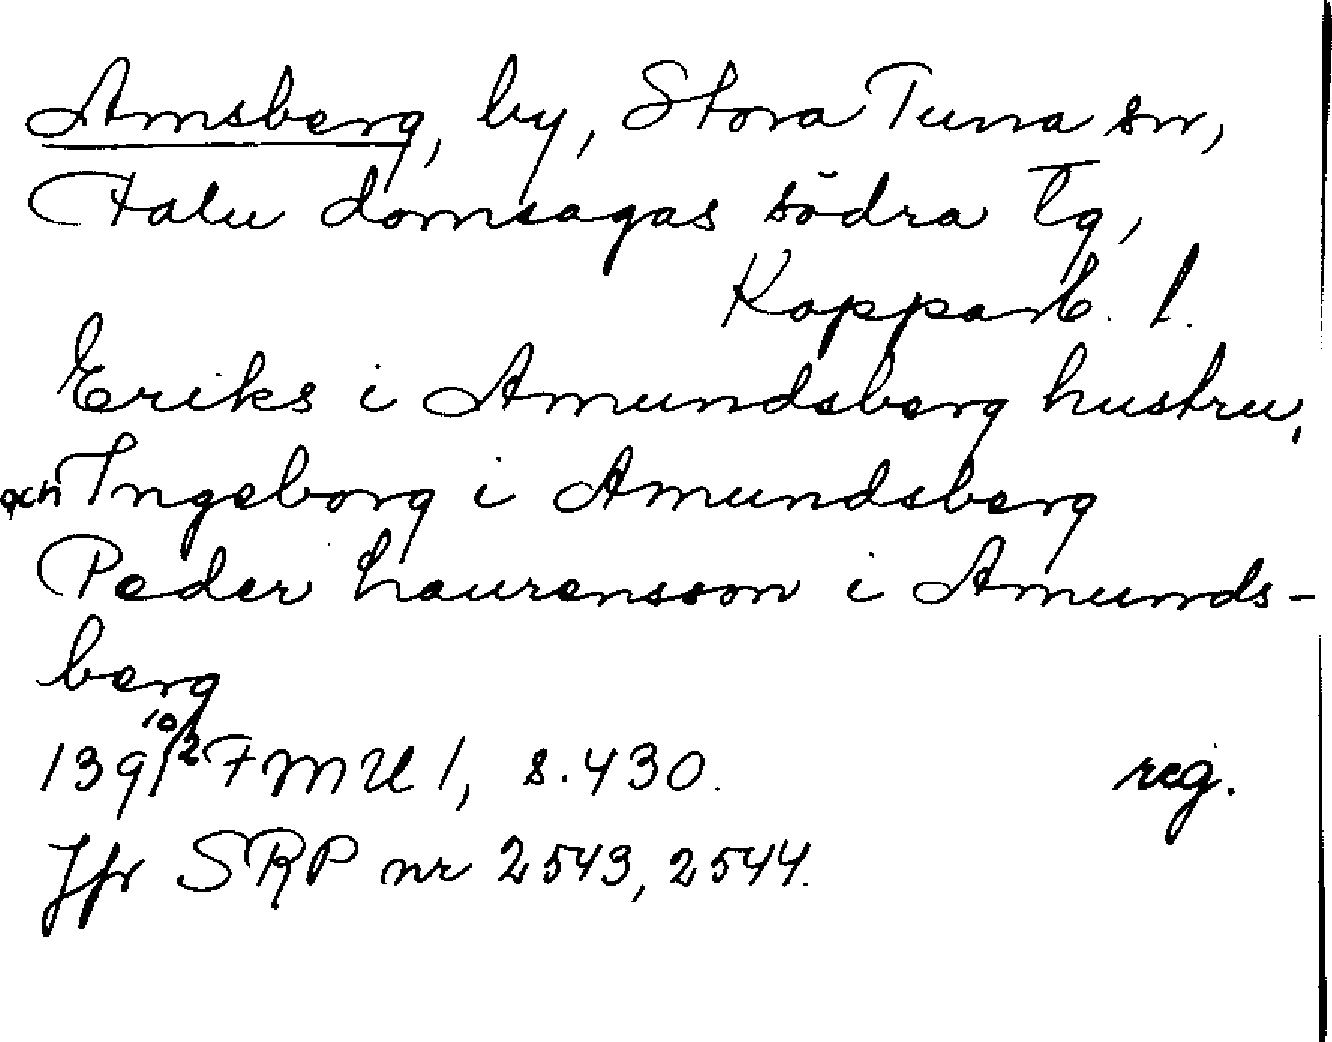 Amsberg, by, Stora Tuna sn,
Falu domsagas södra tg,
Kopparb. l.
Eriks i Amundsberg hustru,
och Ingeborg i Amundsberg
Peder Laurensson i Amunds-
berg
1391 10/2 FMU 1, s. 430. reg.
Jfr SRP nr 2543, 2544.